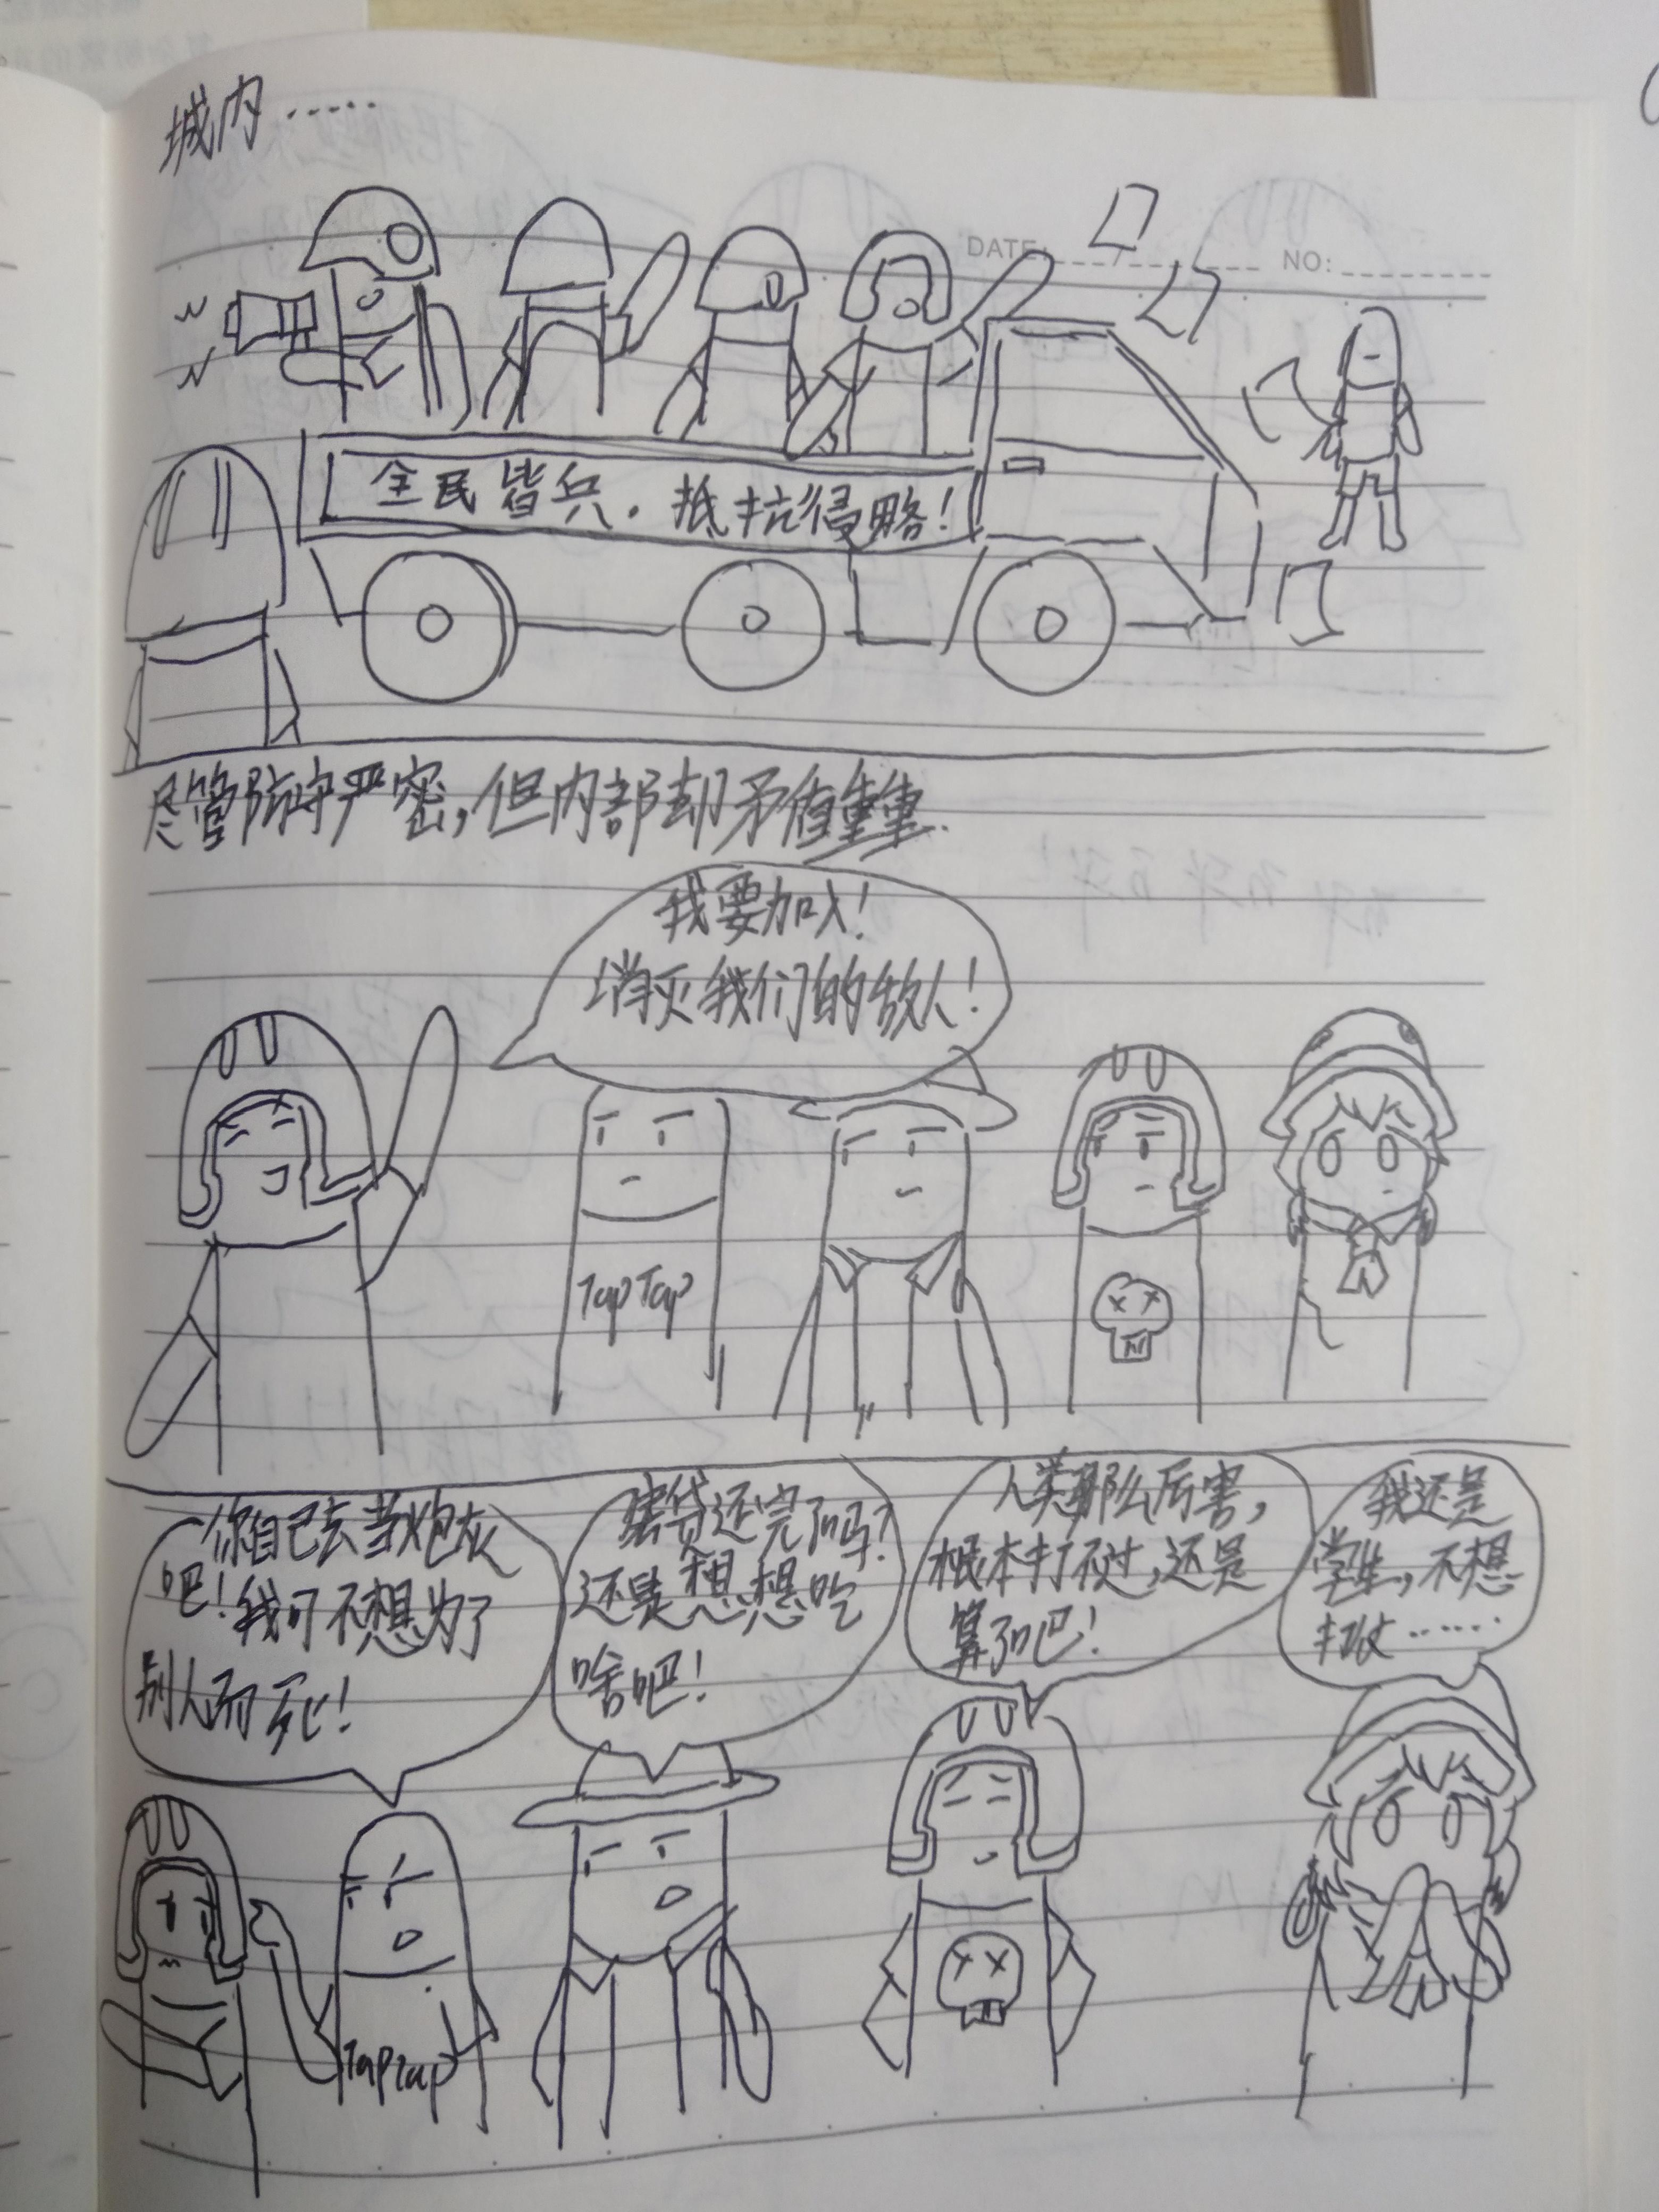 城内……
DATE:
NO:
全民皆兵．抵抗侵略！
尽管防守严密，但内部却矛盾重重.
我要加入！
消灭我们的敌人！
TapTap
你自己去当炮灰
吧！我可不想为了
别人而死！
房贷还完了吗？
还是想想吃
啥吧！
人类那么厉害，
根本打不过，还是
算了吧！
我还是
学生，不想
……
TapTap